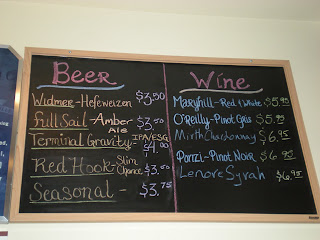 Beer
Widmer - Hefeweizen $3.50
Full Sail - Amber Ale $3.50
Terminal Gravity - IPA/ESG $4.00
Red Hook - Slim Chance $3.00
Seasonal - $3.75
Wine
Maryhill - Red & White $5.95
O'Reilly - Pinot Gris $5.95
Mirth Chardonnay $6.95
Ponzi - Pinot Noir $6.95
Lenore Syrah $6.95